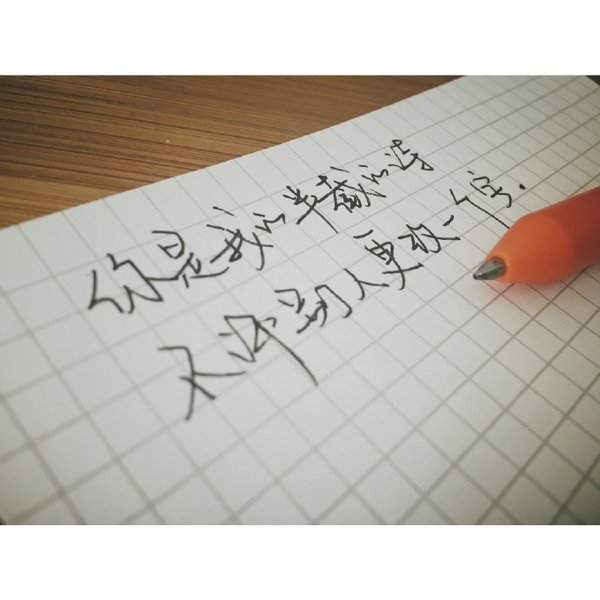 你是我的半截的诗
不许别人更改一个字.